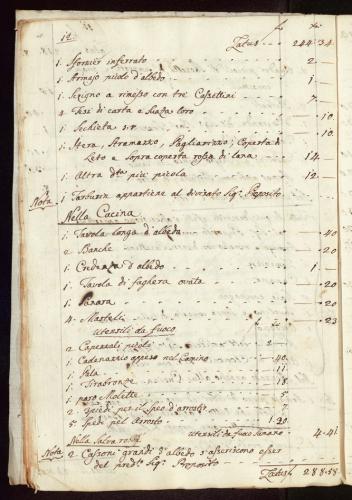 12. f xr
Latus 244.34.
1. Sfornier inferrato 2 —
1. Armajo picolo d'albedo 1 —
1. Scrigno a rimesso con tre Cassettini 7 —
4. Tese di carta e loro — 10
1. Sechieta — 10.
1. Stramazzo, Pagliarizzo, Coperta di
Leto e sopra coperta rossa di lana 14. —
1. Altra dta più picola 12 —
Nota 1. Tarburin appartiene al divisato Sigr. Preposito
Nella Cucina
1. Tavola longa d'albedo — 40
2. Banche — 20
1. Credenza d'albedo 1 —
1. Tavola di faghera ovata — 20
1. Panara — 20
4. Martelli — 23
Utensili da fuoco f xr
2. Cavezzali picoli 2 —
1. Cadenazzo appeso nel Camino — 40
1. Pala 11
1. 18
1. paro Molette 5
2. per il Speo d'arrosto 7
5. Spedi pel Arrosto 1.20
Utensili da fuoco Summano 4.41
Nella Salva rossa
Nota 2. Cassoni grandi d'albedo s'asseriscono esser
del predto Sigr. Preposito
Latus 288.58